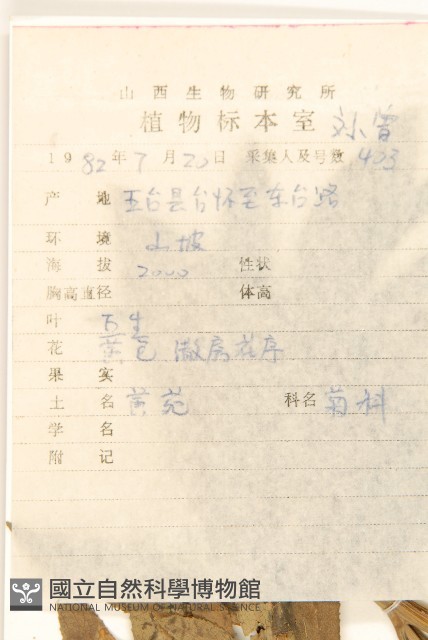 山西生物研究所
植物标本室 刘 曾
1982年7月20日 采集人及号数 403
产地 五台县台怀至东台路
环境 山坡
海拔 2000 性状
胸高直径 体高
叶 互生
花 黄色 伞房花序
果实
土名 黄菀 科名 菊科
学名
附记
國立自然科學博物館
NATIONAL MUSEUM OF NATURAL SCIENCE